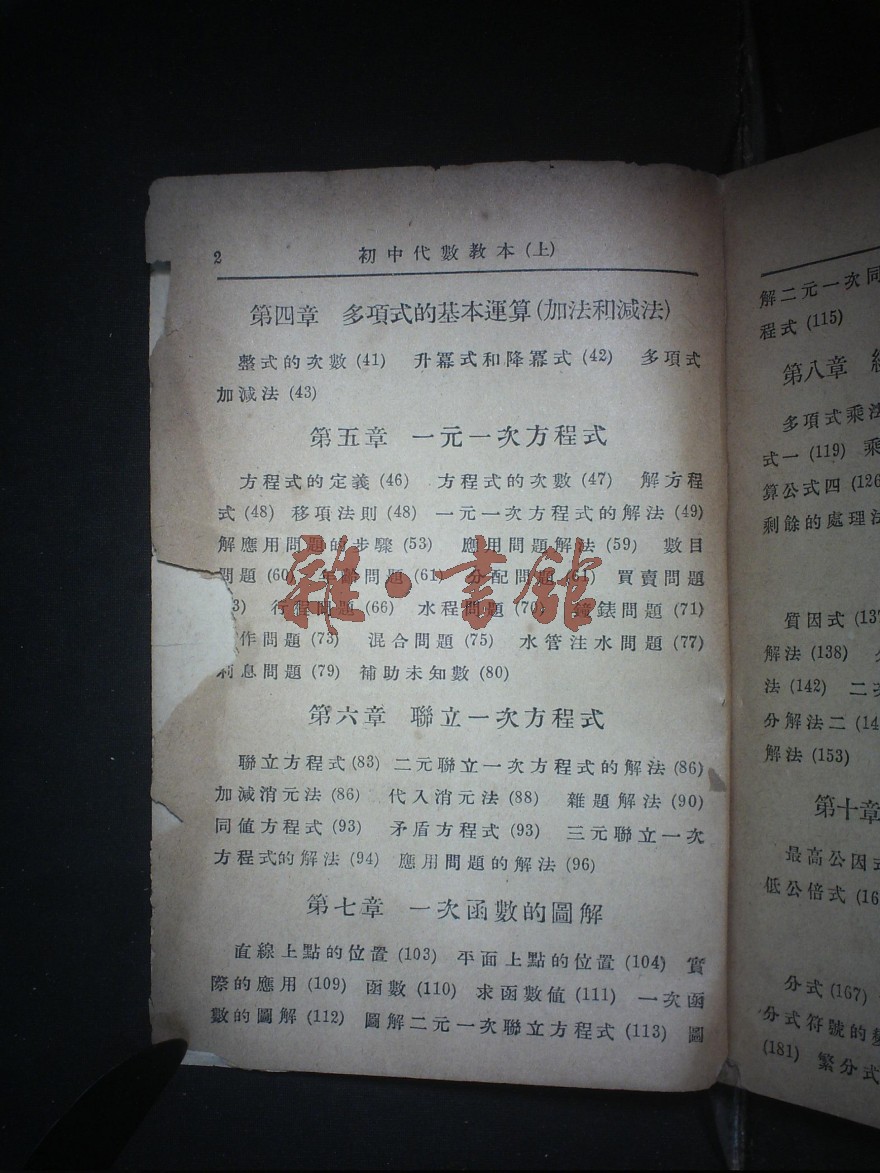 2 初中代數教本(上)
第四章 多項式的基本運算(加法和減法)
整式的次數 (41) 升冪式和降冪式 (42) 多項式
加減法 (43)
第五章 一元一次方程式
方程式的定義 (46) 方程式的次數 (47) 解方程
式 (48) 移項法則 (48) 一元一次方程式的解法 (49)
解應用問題的步驟 (53) 應用問題解法 (59) 數目
問題 (60) 年齡問題 (61) 分配問題 (61) 買賣問題
3) 行程問題 (66) 水程問題 (70) 鐘錶問題 (71)
作問題 (73) 混合問題 (75) 水管注水問題 (77)
利息問題 (79) 補助未知數 (80)
第六章 聯立一次方程式
聯立方程式 (83) 二元聯立一次方程式的解法 (86)
加減消元法 (86) 代入消元法 (88) 雜題解法 (90)
同值方程式 (93) 矛盾方程式 (93) 三元聯立一次
方程式的解法 (94) 應用問題的解法 (96)
第七章 一次函數的圖解
直線上點的位置 (103) 平面上點的位置 (104) 實
際的應用 (109) 函數 (110) 求函數值 (111) 一次函
數的圖解 (112) 圖解二元一次聯立方程式 (113) 圖
雜·書館
解二元一次同
程式 (115)
第八章
多項式乘法
式一 (119) 乘
算公式四 (126
剩餘的處理法
質因式 (137
解法 (138)
法 (142) 二次
分解法二 (14
解法 (153)
第十章
最高公因式
低公倍式 (16
分式 (167)
分式符號的變
(181) 繁分式